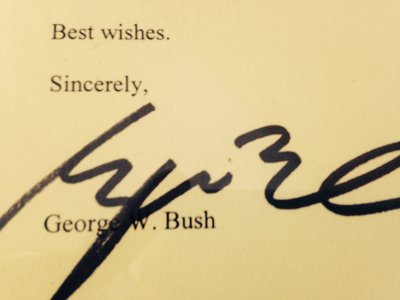 Best wishes.
Sincerely,
George W. Bush